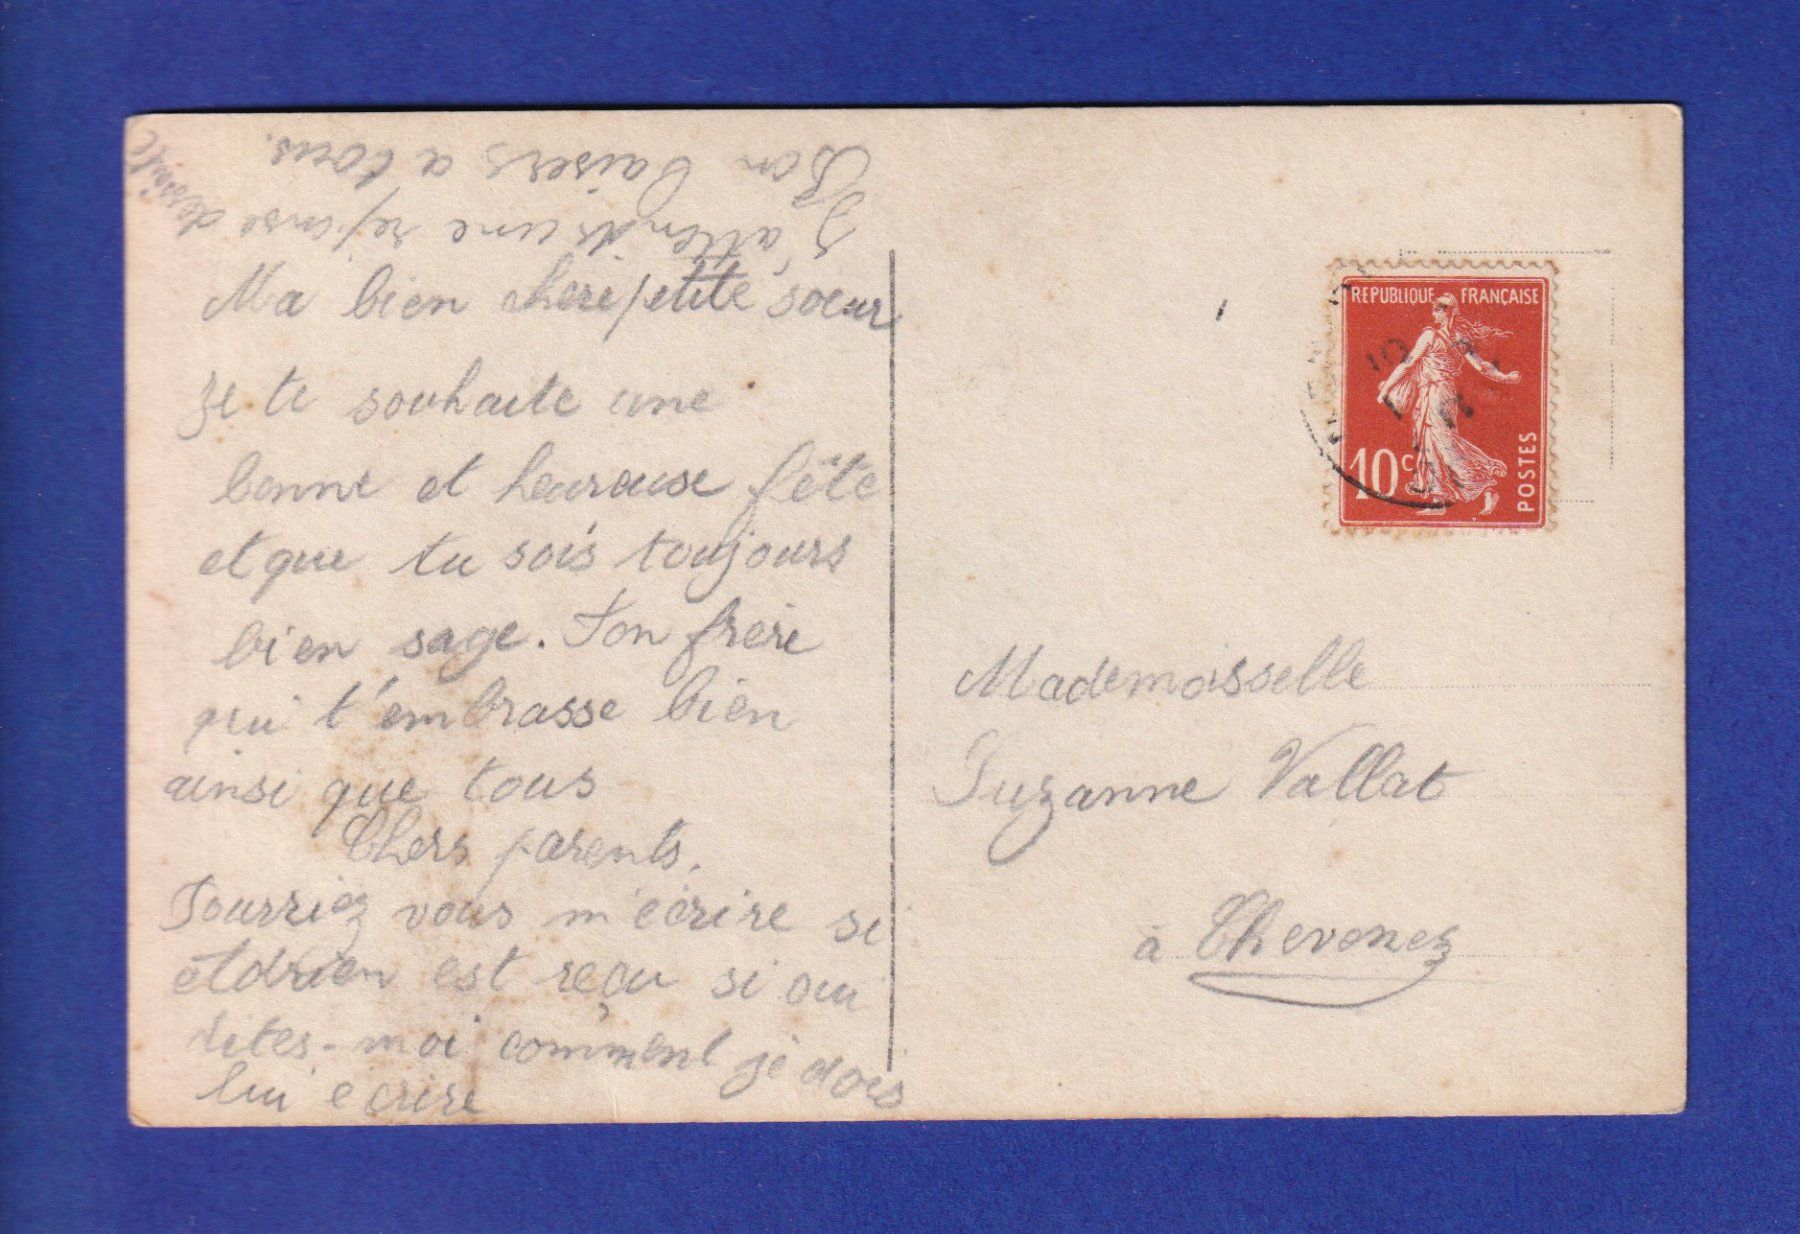 Ma bien cheri petite soeur
Je te souhaite une
bonne et heureuse fête
et que tu sois toujours
bien sage. Ton frere
qui t'embrasse bien
ainsi que tous
Chers parents.
Pourriez vous m'écrire si
Adrien est reçu si oui
dites-moi comment je dois
lui écrire
J'attends une reponse de suite
Bon baisers a tous.
REPUBLIQUE FRANÇAISE
10 c
POSTES
Mademoisselle
Suzanne Vallat
à Thevenez